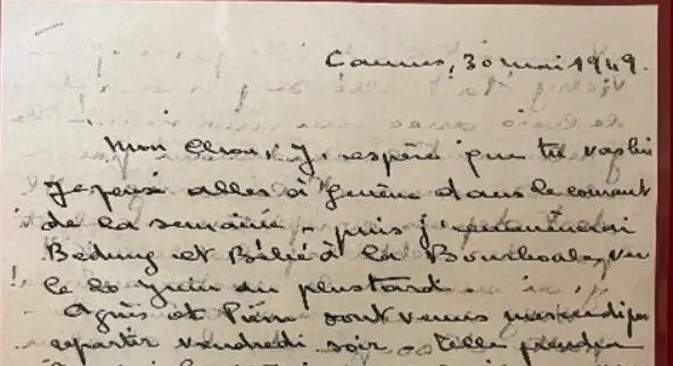 Cannes, 30 mai 1949.
Mon Chou, J'espère que tu vas bien
Je pense aller à Genève dans le courant
de la semaine - puis j'emmènerai
et Bébé à la Bourboule, vers
le 20 juin au plus tard
Agnès et Pierre sont venus mercredi pour
repartir vendredi soir - telle